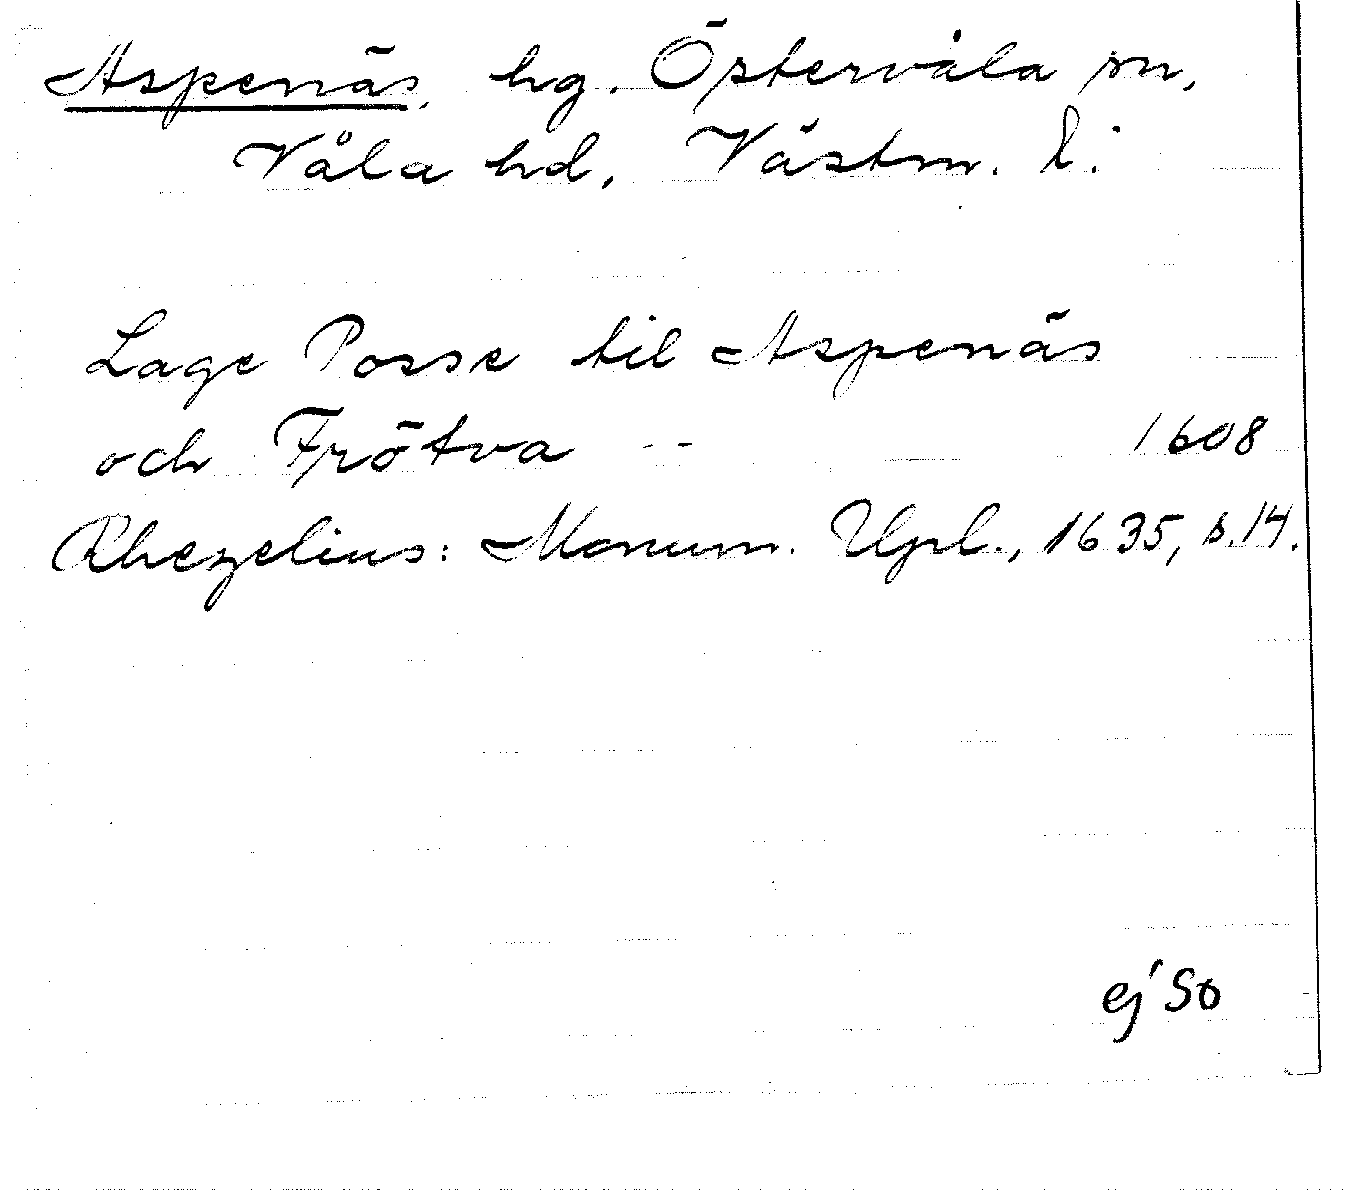 Aspenäs, hg. Östervåla sn,
Våla hd, Västm. l.
Lage Posse til Aspenäs
och Frötva -- 1608
Rhezelius: Monum. Upl., 1635, s. 14.
ej SO